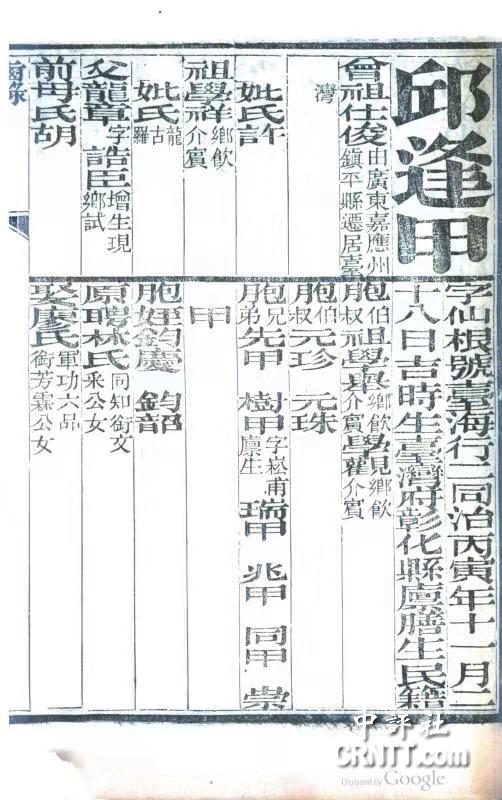 邱逢甲
字仙根號臺海行二同治丙寅年十一月二
十八日吉時生臺灣府彰化縣廩膳生民籍
曾祖仕俊 由廣東嘉應州 鎮平縣遷居臺
灣
妣氏許
祖學祥 鄉飲 介賓
妣氏 龍 古 羅
父龍章 字誥臣 增生現 鄉試
前母氏胡
胞伯叔祖學 鄉飲 介賓 學 鄉飲 介賓
胞伯叔元珍 元珠
胞兄弟先甲 樹甲 字崧甫 廪生 瑞甲 兆甲 同甲 崇
甲
胞姪鈞慶 鈞韶
原聘林氏 同知銜文 釆公女
娶廖氏 軍功六品 銜芳霖公女
齒錄
中評社
CRNTT.com
Digitized by Google